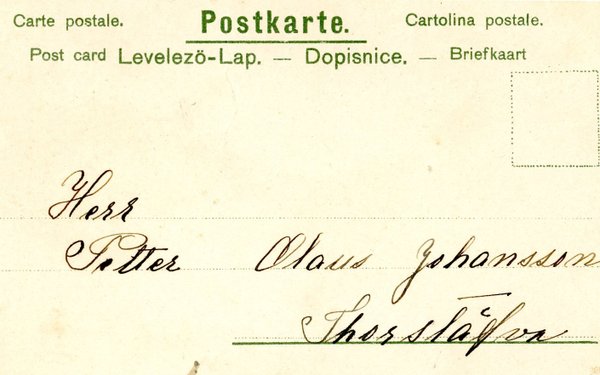 Carte postale. Postkarte. Cartolina postale.
Post card Levelezö-Lap. — Dopisnice. — Briefkaart
Herr
Petter Olaus Johansson
Thorsläfva